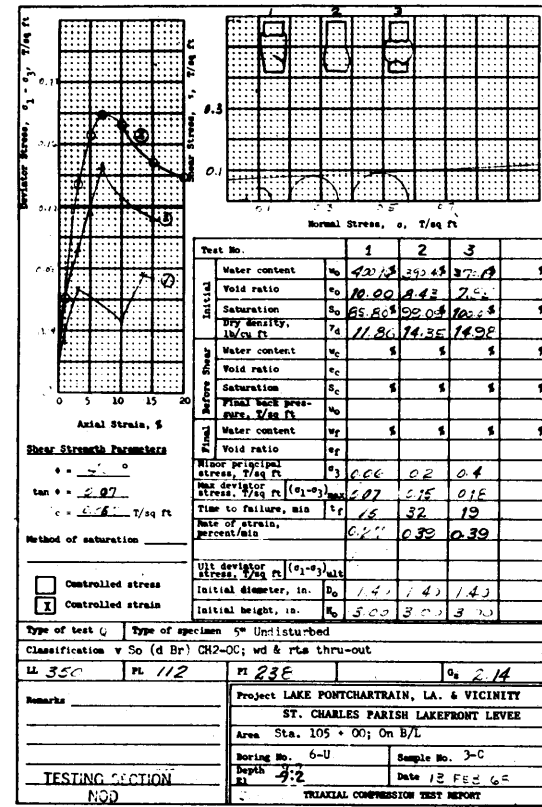 1 2 3
Deviator Stress, σ1 - σ3, T/sq ft
Shear Stress, τ, T/sq ft
0.3
0.1
Normal Stress, σ, T/sq ft
0 5 10 15 20
Axial Strain, %
Shear Strength Parameters
φ = °
tan φ = 0.07
c = T/sq ft
Method of saturation
Controlled stress
X Controlled strain
Test No. 1 2 3
Initial
Water content wo % % % %
Void ratio eo 10.00 8.43
Saturation So 85.80% 99.0 % %
Dry density, lb/cu ft γd 11.80 14.35 14.98
Before Shear
Water content wc % % % %
Void ratio ec
Saturation Sc % % % %
Final back pressure, T/sq ft uo
Final
Water content wf % % % %
Void ratio ef
Minor principal stress, T/sq ft σ3 0.06 0.2 0.4
Max deviator stress, T/sq ft (σ1-σ3)max 0.07 0.15 0.18
Time to failure, min tf 15 32 19
Rate of strain, percent/min 0.39 0.39
Ult deviator stress, T/sq ft (σ1-σ3)ult
Initial diameter, in. Do 1.40 1.40 1.40
Initial height, in. Ho 3.00 3.00 3.00
Type of test Q Type of specimen 5" Undisturbed
Classification v So (d Br) CH2-OC; wd & rts thru-out
LL 350 PL 112 PI 238 Gs 2.14
Remarks
Project LAKE PONTCHARTRAIN, LA. & VICINITY
ST. CHARLES PARISH LAKEFRONT LEVEE
Area Sta. 105 + 00; On B/L
Boring No. 6-U Sample No. 3-C
Depth El 9.2 Date FEB
TESTING SECTION
NOD
TRIAXIAL COMPRESSION TEST REPORT